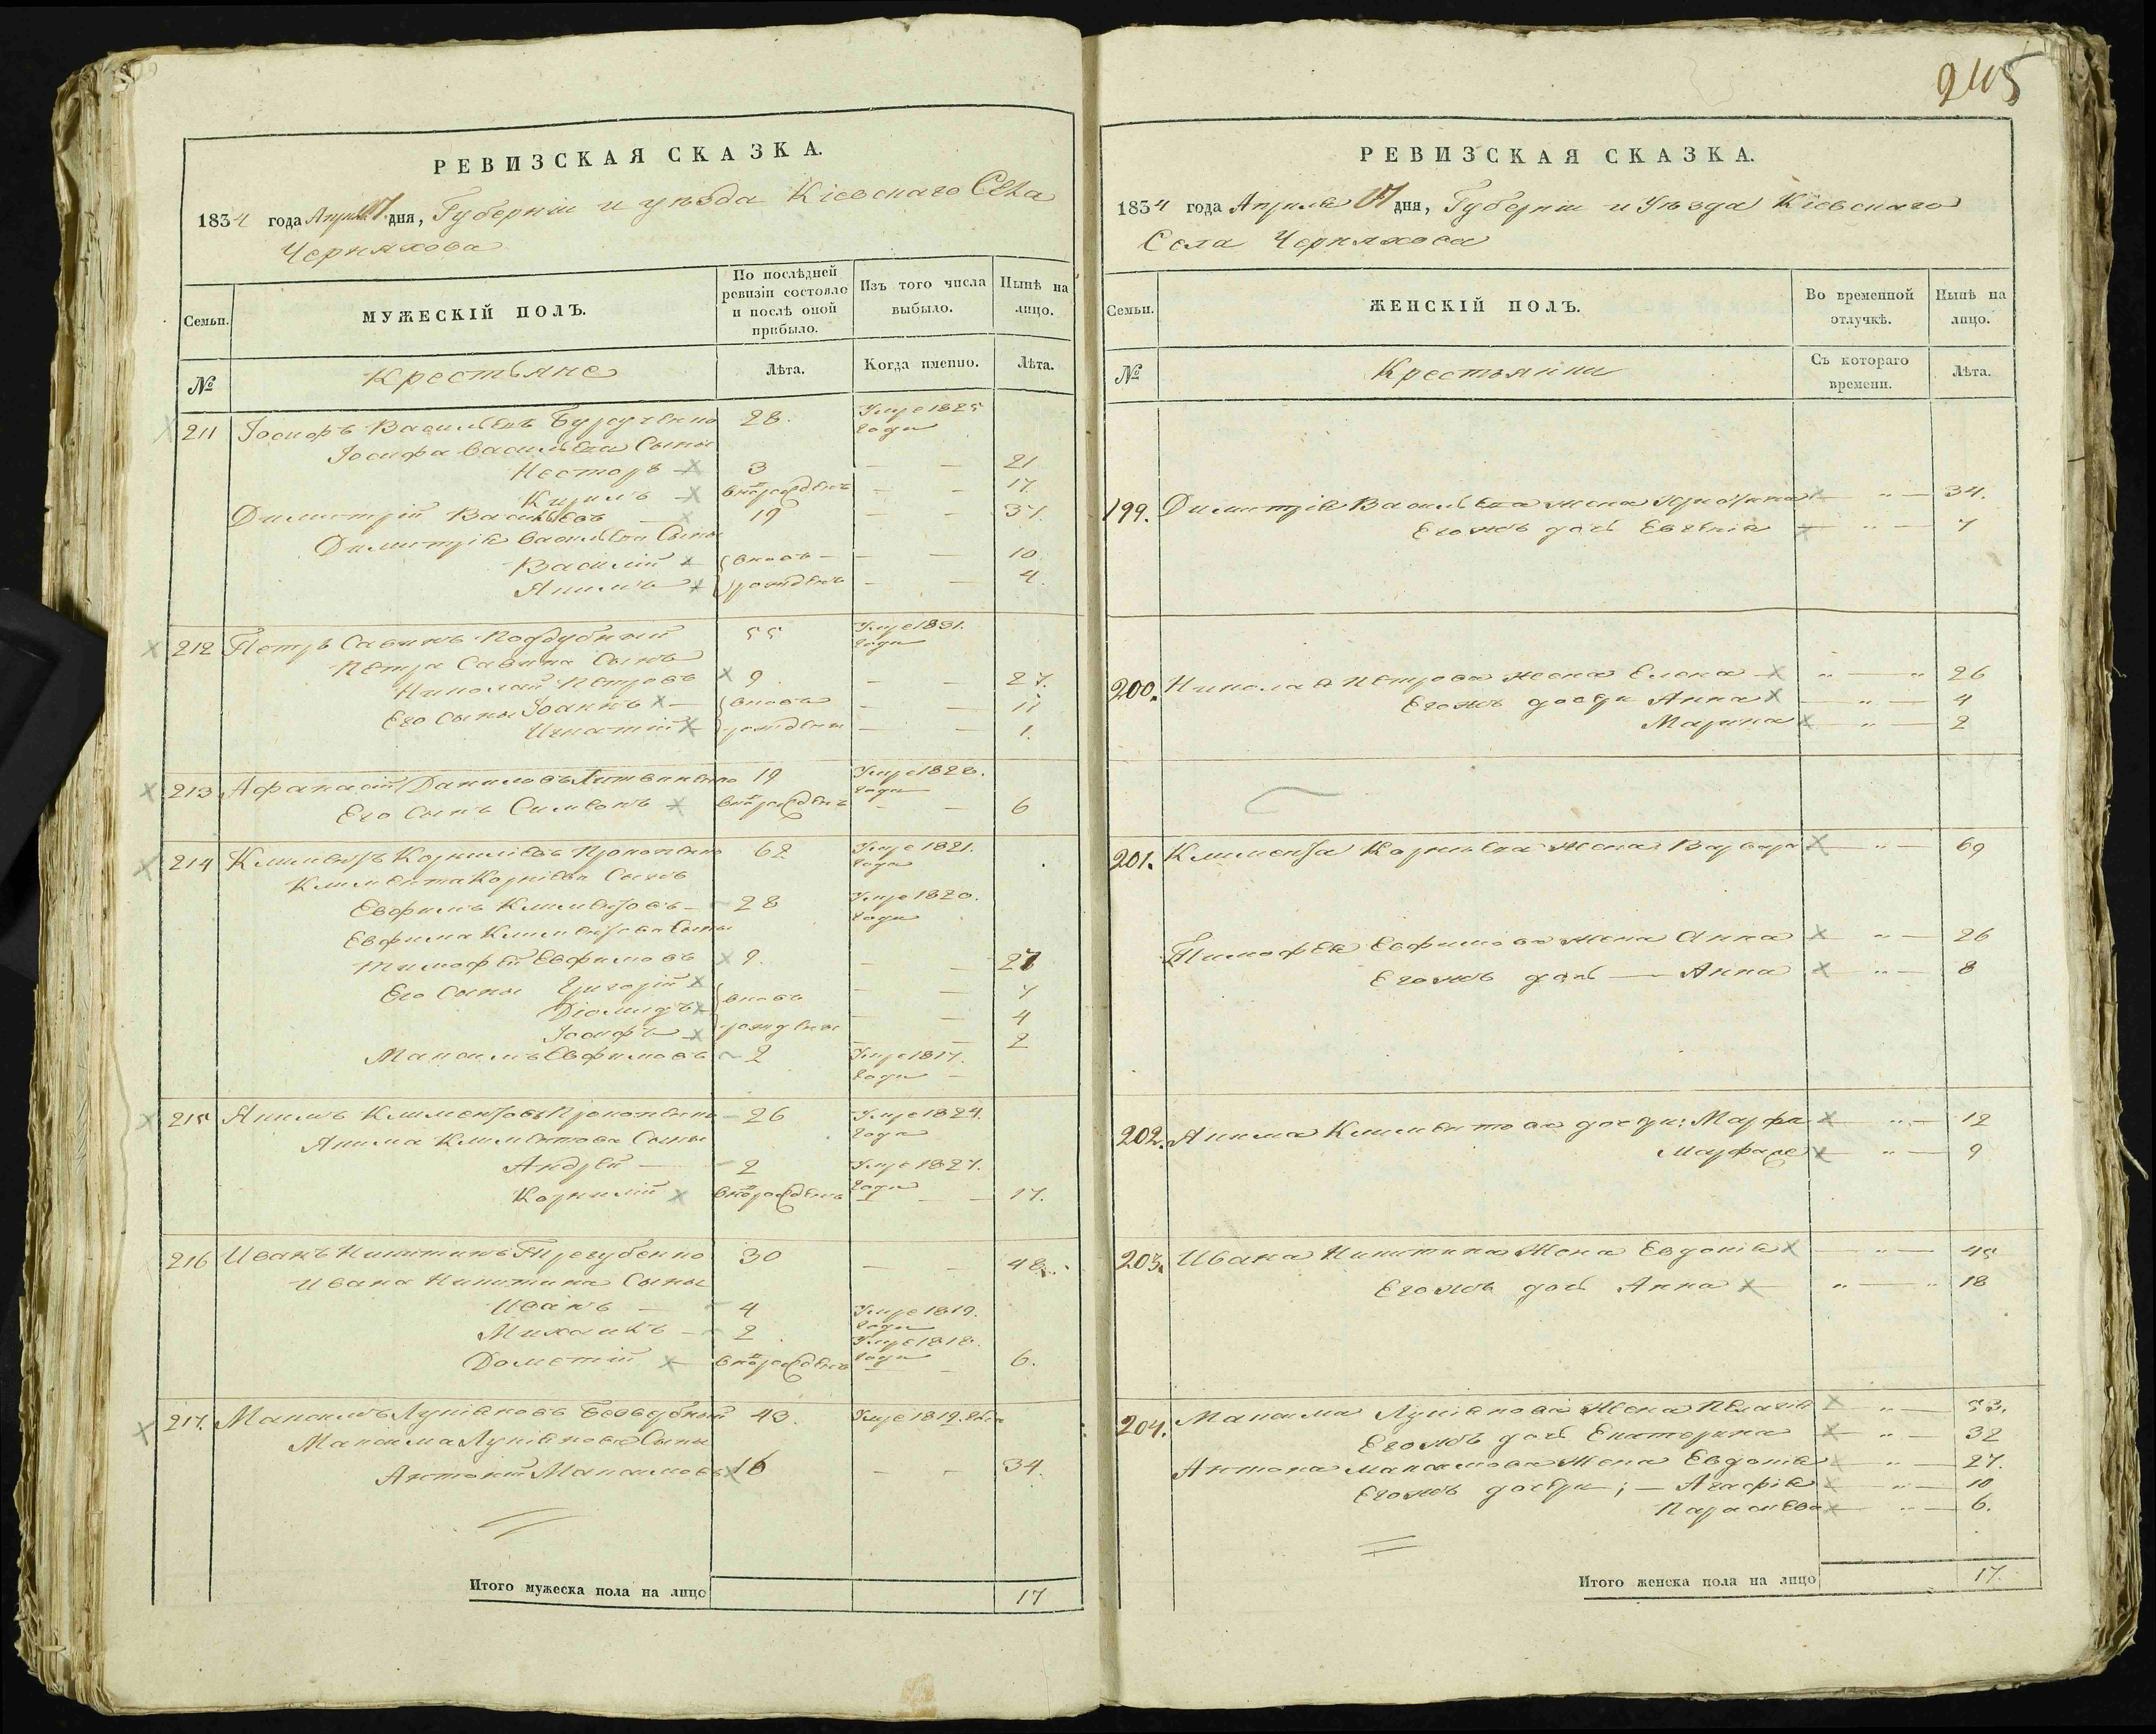 РЕВИЗСКАЯ СКАЗКА.
1834 года Апреля 17 дня, Губерніи и уѣзда Кіевскаго Села
Черняхова
Семьи. МУЖЕСКІЙ ПОЛЪ. По послѣдней ревизіи состояло и послѣ оной прибыло. Изъ того числа выбыло. Нынѣ на лицо.
№ Крестьяне Лѣта. Когда именно. Лѣта.
211 Іосифъ Васильевъ 28. Умре 1825 года
Іосифа Васильева Сыны
Несторъ 3 21
Кирилъ вновьрожденъ 17
Димитрій Васильевъ 19 37.
Димитрія Васильева Сыны
Василій вновь 10
Якимъ рожденъ 4.
212 Петръ Савинъ Поддубный 55 Умре 1831. года
Петра Савина Сынъ
Николай Петровъ 9 27.
Его Сыны Іоаннъ вновь 11
Игнатій рождены 1.
213 Афанасій Даниловъ Литвиненко 19 Умре 1828. года
Его Сынъ Симеонъ вновьрожденъ 6
214 Климентъ Корниліевъ Прокопенко 62 Умре 1821. года
Климента Корніева Сынъ
Евфимъ Климентовъ 28 Умре 1820. года
Евфима Климентова Сыны
Тимофей Евфимовъ 9. 27
Его Сыны Григорій 7
Діомидъ вновь 4
Іосифъ рождены 2
Максимъ Евфимовъ 2 Умре 1817. года
215 Якимъ Климентовъ Прокопенко 26 Умре 1824. года
Якима Климентова Сыны
Андрей 2 Умре 1827. года
Корнилій вновьрожденъ 17.
216 Иванъ Никитинъ Трегубенко 30 48.
Ивана Никитина Сыны
Иванъ 4 Умре 1819. года
Михаилъ 2 Умре 1818. года
Дометій вновьрожденъ 6.
217. Максимъ Лукіяновъ 43. Умре 1819. года
Максима Лукіянова Сыны
Антоній Максимовъ 16 34.
Итого мужеска пола на лицо 17
245
РЕВИЗСКАЯ СКАЗКА.
1834 года Апреля 17 дня, Губерніи и Уѣзда Кіевскаго
Села Черняхова
Семьи. ЖЕНСКІЙ ПОЛЪ. Во временной отлучкѣ. Нынѣ на лицо.
№ Крестьянки Съ котораго времени. Лѣта.
199. Димитрія Васильева жена 34.
Егожъ дочь Евгенія 7
200. Николая Петрова жена Елена 26
Егожъ дочери Анна 4
Марина 2
201. Климента Корнѣева жена Варвара 69
Тимофея Евфимова жена Анна 26
Егожъ дочь Анна 8
202. Якима Климентова дочери: Марфа 12
Марфа же 9
203. Ивана Никитина Жена Евдокія 45
Егожъ дочь Анна 18
204. Максима Лукіянова Жена Пелагія 53.
Егожъ дочь Екатерина 32
Антона Максимова Жена Евдокія 27.
Егожъ дочери; Агафія 10
Параскева 6.
Итого женска пола на лицо 17.